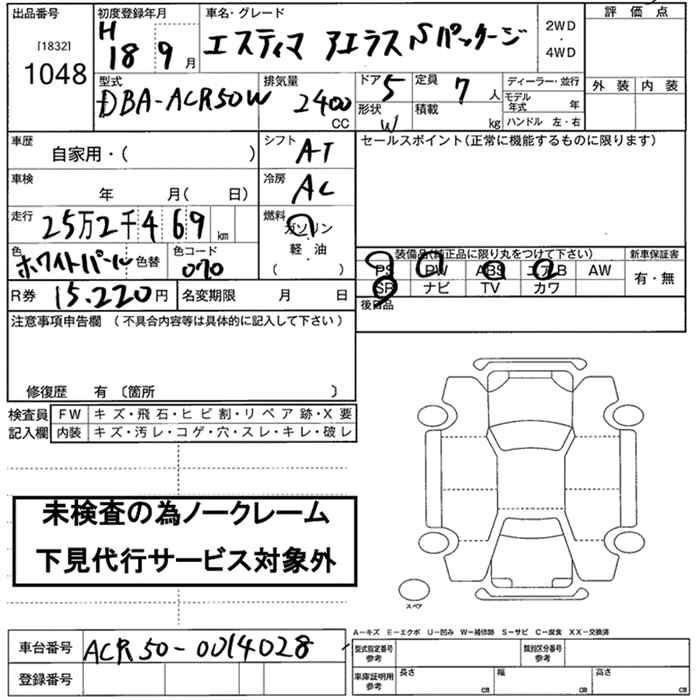 出品番号
[1832]
1048
初度登録年月
H
18 9 月
車名・グレード
エスティマ アエラス Sパッケージ
2WD
・
4WD
評価点
外装 内装
型式
DBA-ACR50W
排気量
2400
CC
ドア 5
形状 W
定員 7 人
積載 kg
ディーラー・並行
モデル年式 年
ハンドル 左・右
車歴
自家用・( )
シフト
AT
セールスポイント(正常に機能するものに限ります)
車検
年 月( 日)
冷房
AC
走行
25万2千469 km
燃料
ガソリン
軽・油
( )
色
ホワイトパール
色替
色コード
070
装備品(純正品に限り丸をつけて下さい)
新車保証書
PS PW ABS エアB AW
有・無
SR ナビ TV カワ
R券 15.220円
名変期限 月 日
後日品
注意事項申告欄 (不具合内容等は具体的に記入して下さい)
修復歴 有 〔箇所 〕
検査員
記入欄
FW キズ・飛石・ヒビ割・リペア跡・X要
内装 キズ・汚レ・コゲ・穴・スレ・キレ・破レ
未検査の為ノークレーム
下見代行サービス対象外
スペア
車台番号 ACR50-0014028
登録番号
A−キズ E−エクボ U−凹み W−補修跡 S−サビ C−腐食 XX−交換済
型式指定番号
参考
類別区分番号
参考
車庫証明用
参考
長さ cm
幅 cm
高さ cm